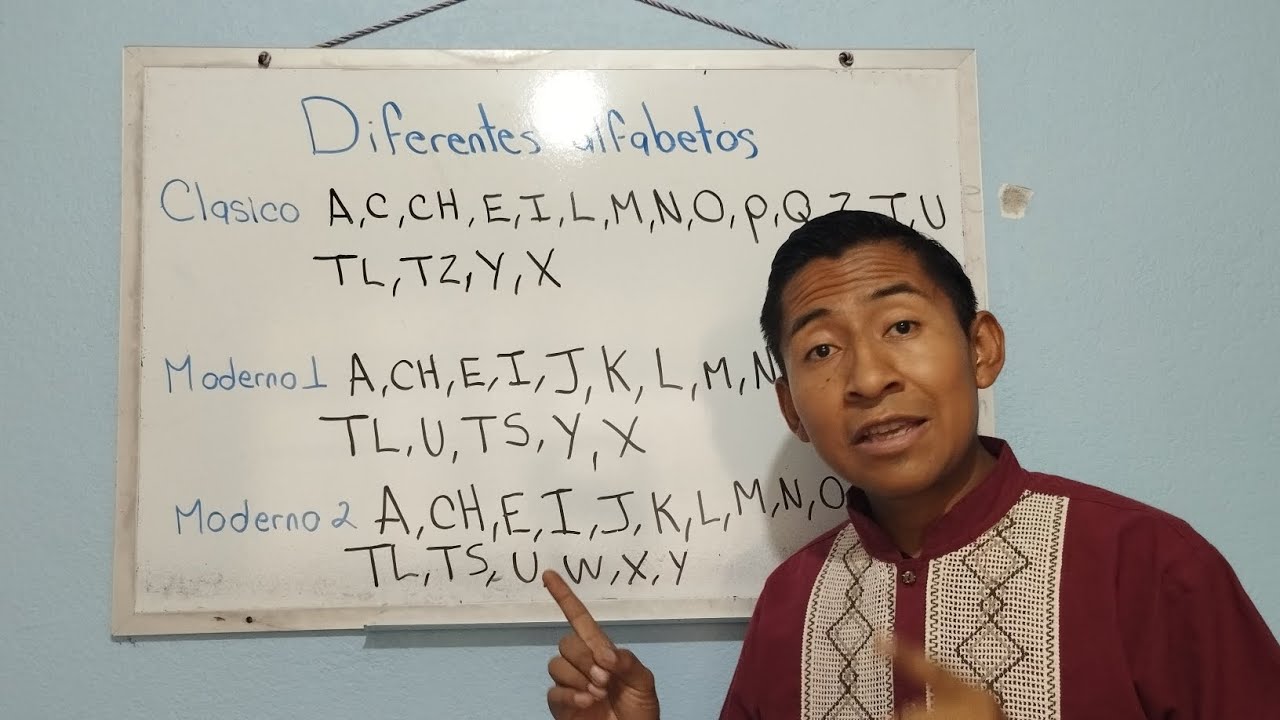 Diferentes alfabetos
Clasico A, C, CH, E, I, L, M, N, O, P, Q, Z, T, U
TL, TZ, Y, X
Moderno 1 A, CH, E, I, J, K, L, M, N
TL, U, TS, Y, X
Moderno 2 A, CH, E, I, J, K, L, M, N, O
TL, TS, U, W, X, Y